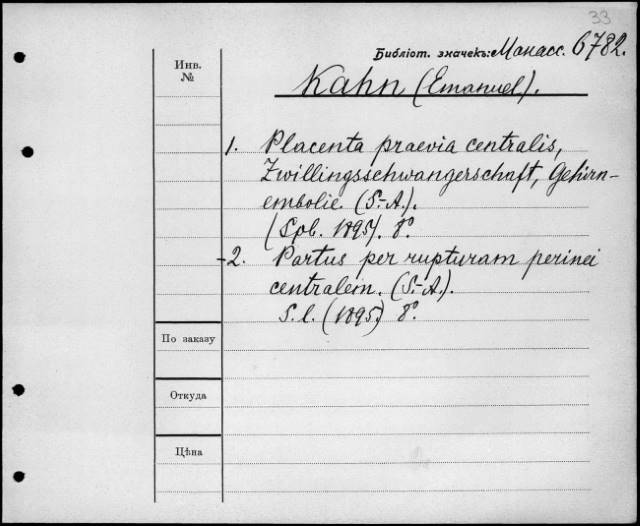 33
Библіот. значекъ: Манасс. 6782.
Инв.
№
Kahn (Emanuel).
1. Placenta praevia centralis,
Zwillingsschwangerschaft, Gehirn-
embolie. (S.-A.).
(Spb. 1895). 8°
-2. Partus per rupturam perinei
centralem. (S.-A.).
S. l. (1895) 8°.
По заказу
Откуда
Цѣна